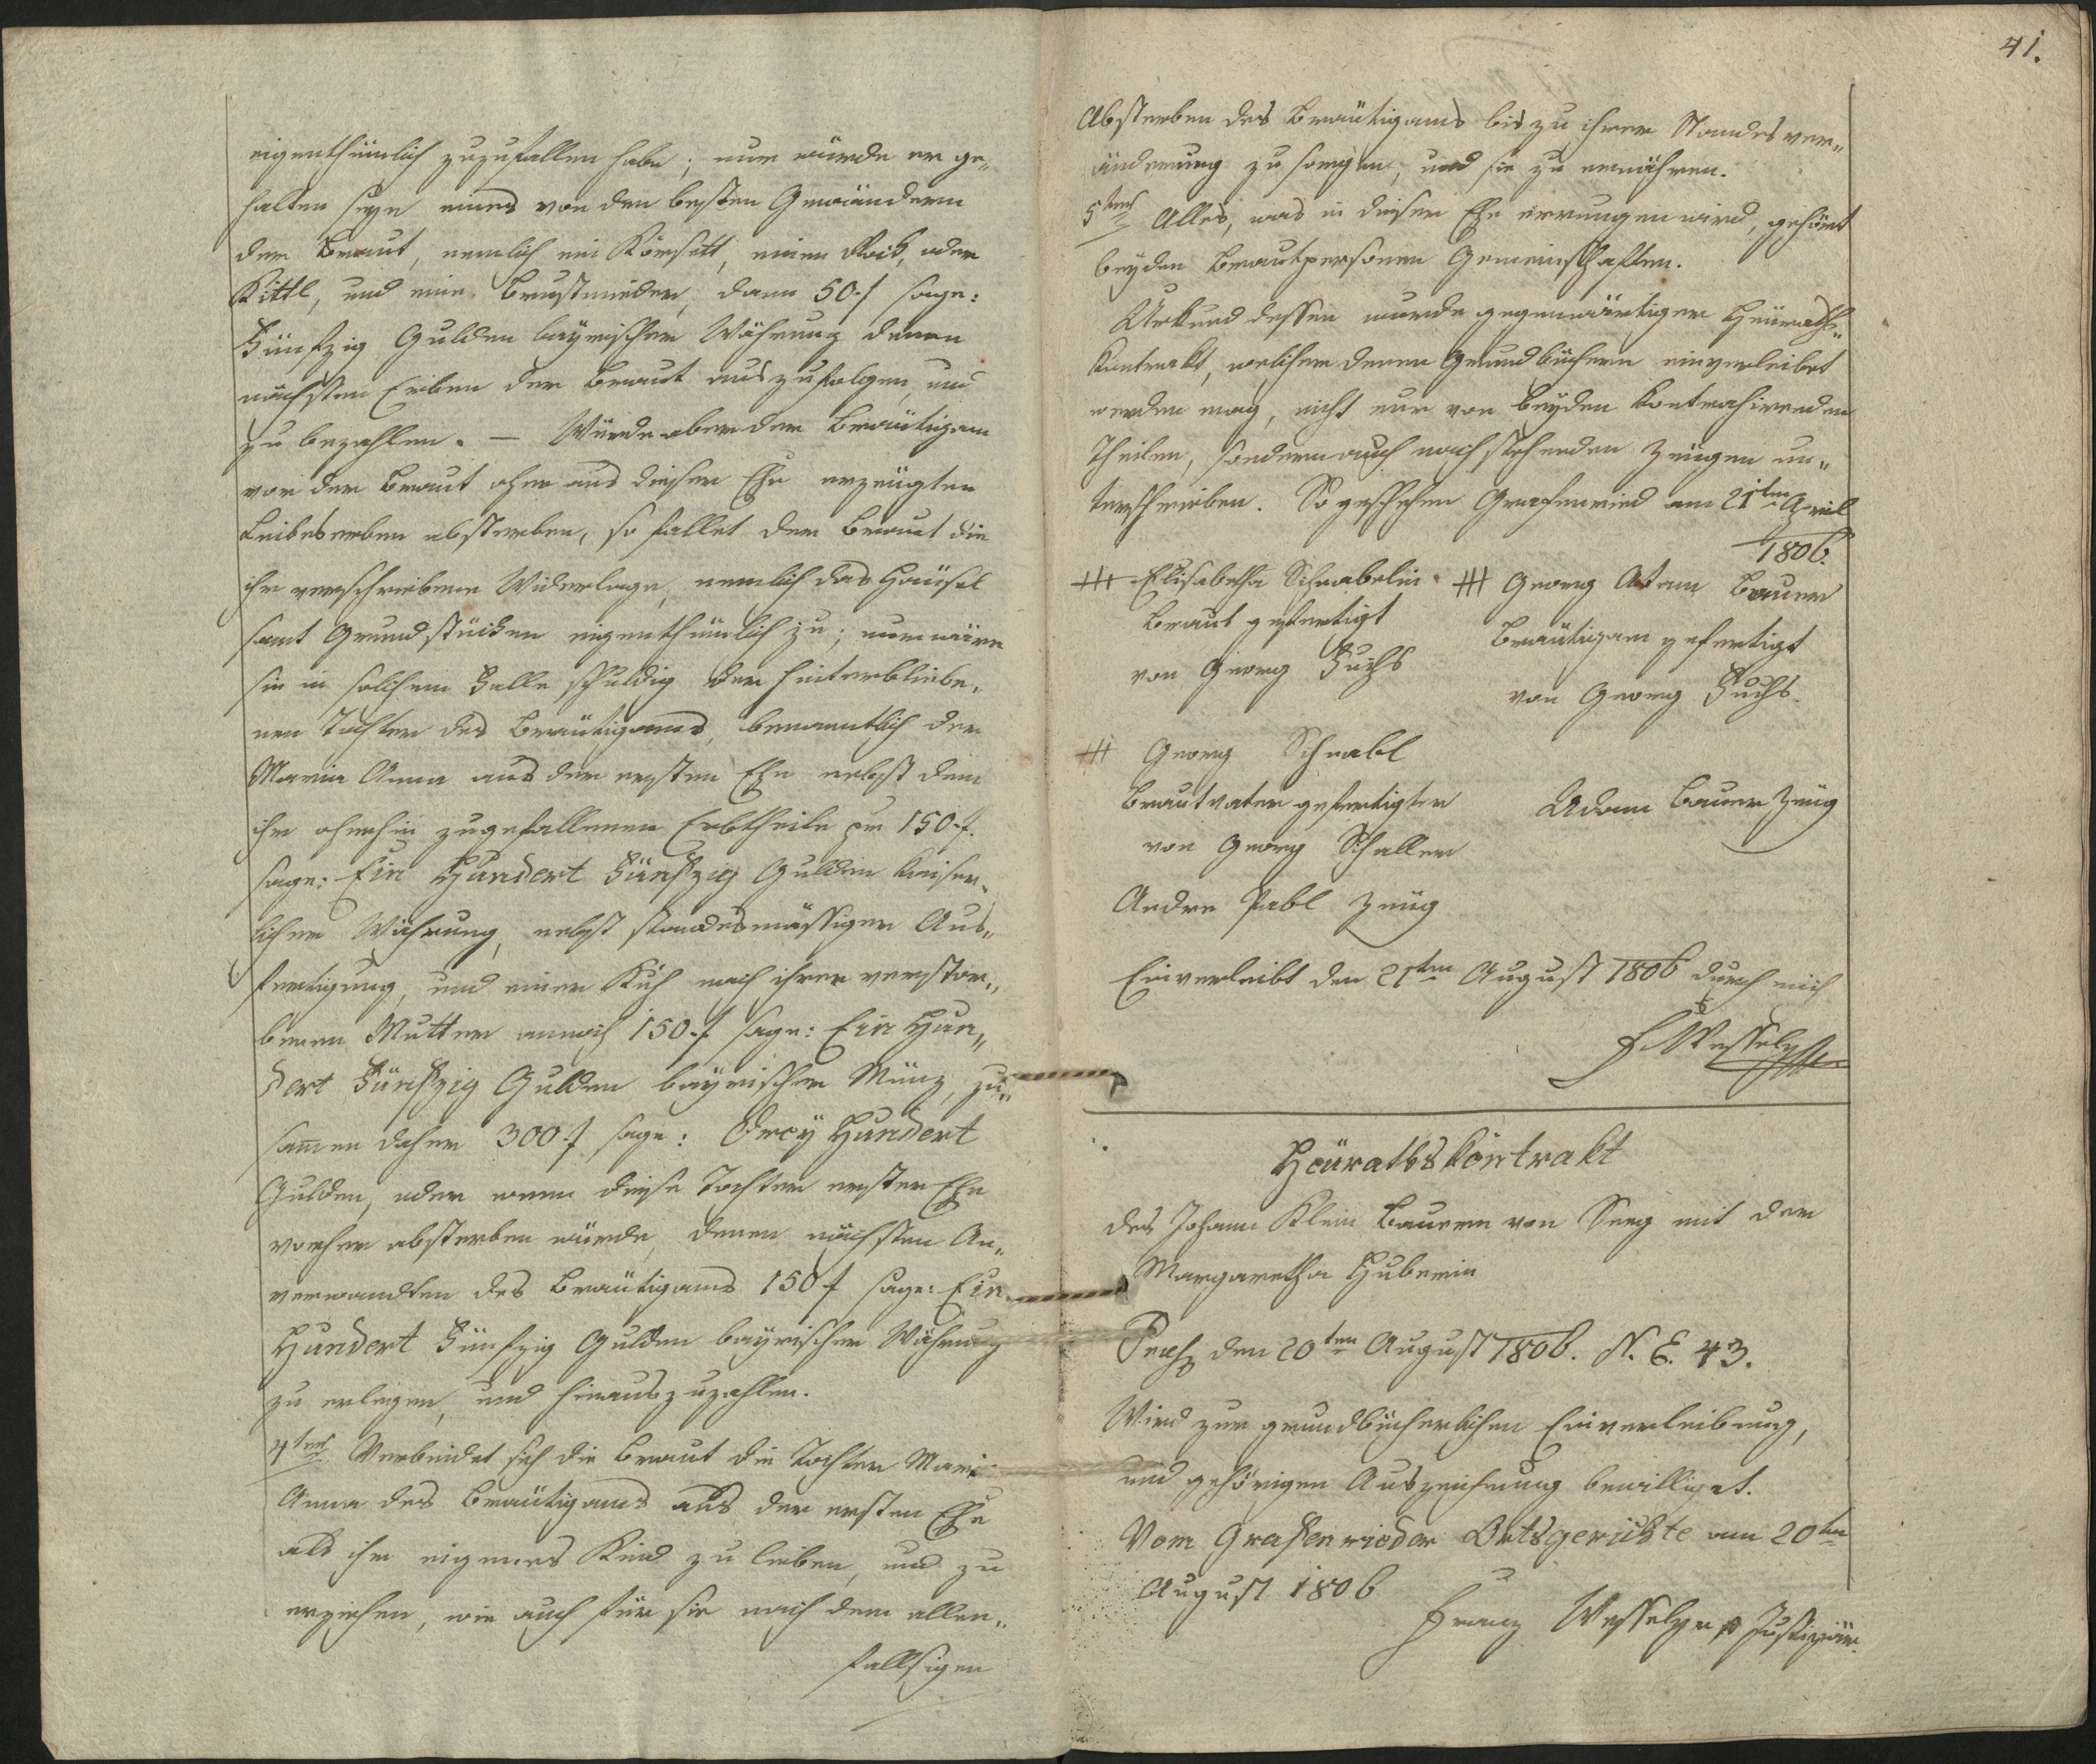 eigenthümlich zuzufallen habe; nur würde er ge„
halten seyn eines von den besten Gewändern
der Braut, nemlich ein Korsett, einen Rock, oder
Kittl, und eine Brustmieder, dann 50 f sage:
Fünfzig Gulden bayrischer Währung denen
nächsten Erben der Braut auszufolgen, und
zu bezahlen. – Würde aber der Bräutigam
vor der Braut ohne aus dieser Ehe erzeugten
Leibeserben absterben, so fallet der Braut die
ihr verschriebene Widerlage, nemlich das Häusel
samt Grundstücken eigenthümlich zu; nur wäre
sie in solchem Falle schuldig der hinterbliebe„
nen Tochter des Bräutigams, benanntlich der
Maria Anna aus der ersten Ehe nebst dem
ihr ohnehin zugefallenen Erbtheile per 150 f.
sage: Ein Hundert Fünfzig Gulden kaiser„
licher Währung, nebst standesmässiger Aus„
fertigung, und einer Kuh nach ihrer verstor„
benen Mutter annoch 150 f sage: Ein Hun„
dert Fünfzig Gulden bayrischer Münz, zu„
sam̄en daher 300 f sage: Drey Hundert
Gulden, oder wenn diese Tochter erster Ehe
vorher absterben würde, denen nächsten An„
verwandten des Bräutigams 150 f sage: Ein
Hundert Fünfzig Gulden bayrischer Währung
zu erlegen, und hinauszuzahlen.
4tens Verbindet sich die Braut die Tochter Mari
Anna des Bräutigams aus der ersten Ehe
als ihr eigenes Kind zu lieben, und zu
erziehen, wie auch für sie nach dem allen„
fallsigen
41.
Absterben des Bräutigams bis zu ihrer Standesver„
änderung zu sorgen, und sie zu ernähren.
5tens Alles, was in dieser Ehe errungen wird, gehört
beyden Brautpersonen Gemeinschaften.
Urkund dessen wurde gegenwärtiger Heurath„
kontrakt, welcher denen Grundbüchern einverleibet
werden mag, nicht nur von beyden kontrahirenden
Theilen, sondern auch nachstehenden Zeugen un„
terschrieben. So geschehen Grafenried am 21ten April
1806.
+++ Elisabetha Schnabelin
Braut gefertigt
von Georg Fuchs
+++ Georg Adam Bauer
Bräutigam gefertigt
von Georg Fuchs.
+++ Georg Schnabl
Brautvater gefertigter
von Georg Schaller
Adam Bauer Zeug
Andre Pabl Zeug
Einverleibt den 21ten August 1806 durch mich
F. Wessely
Heürathskontrakt
des Johann Klein Bauern von Seeg mit der
Margaretha Huberin
Praes den 20ten August 1806. N. E. 43.
Wird zur grundbücherlichen Einverleibung,
und gehörigen Auszeichnung bewilliget.
Vom Grafenrieder Ortsgerichte am 20ten
August 1806
Franz Wessely Justiziär.